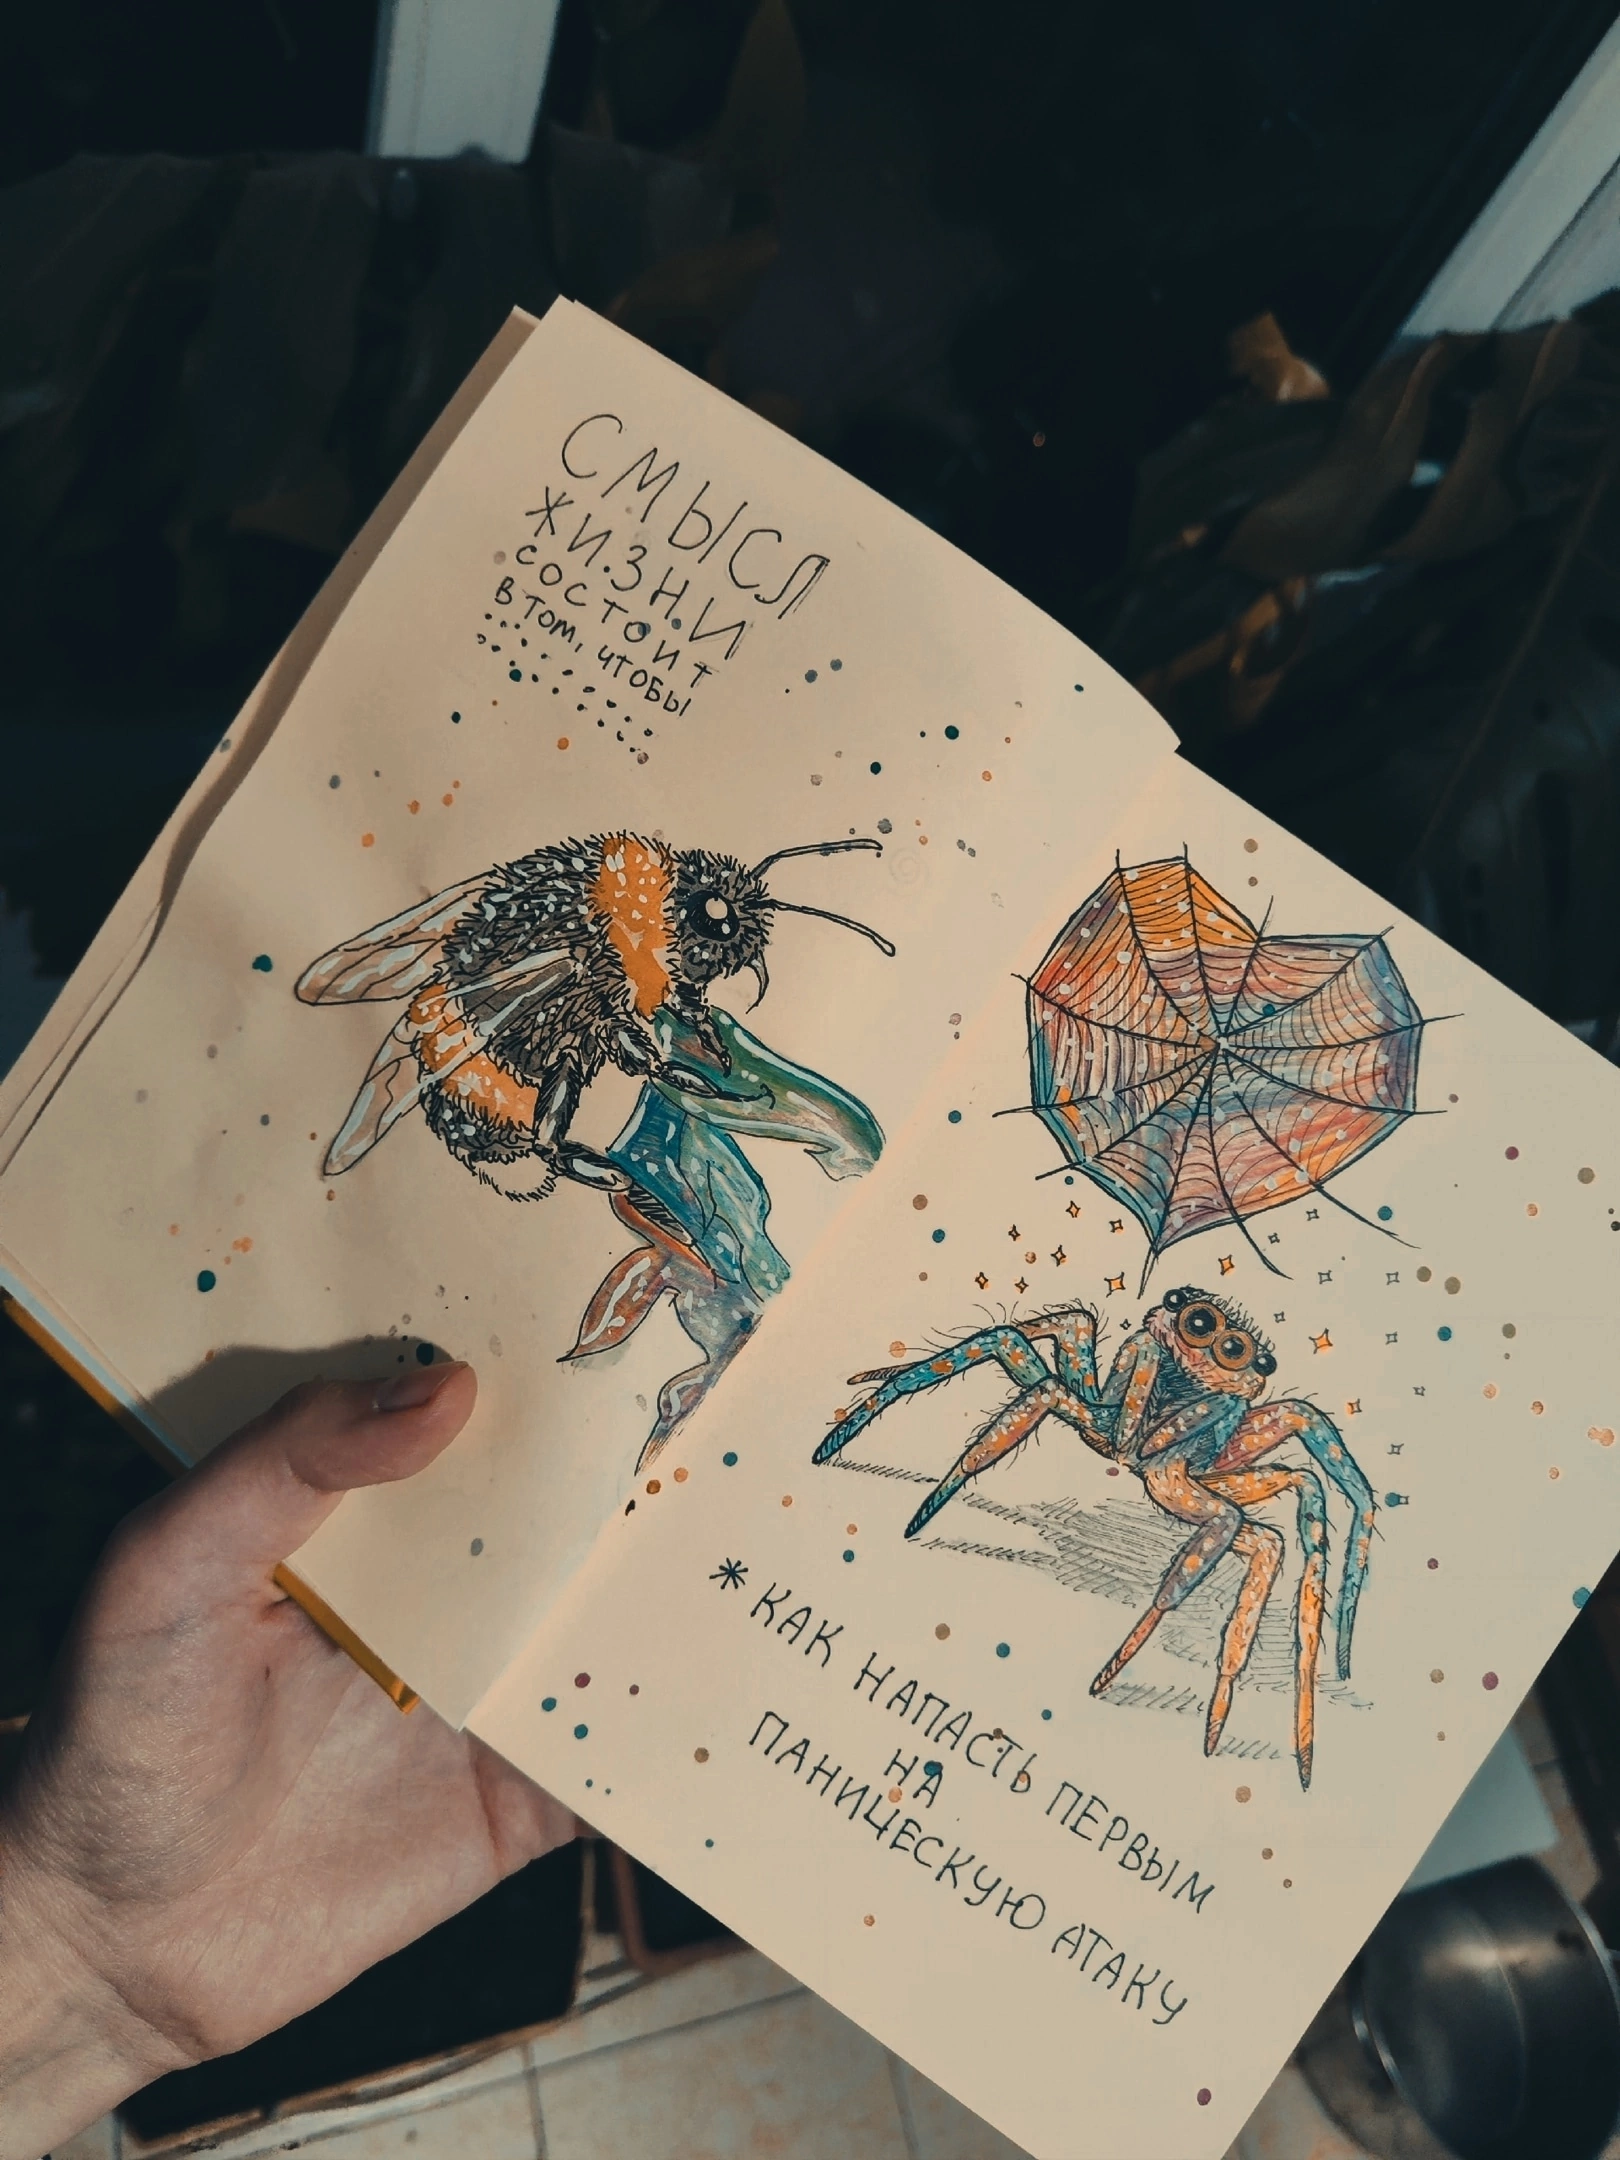 СМЫСЛ
ЖИЗНИ
СОСТОИТ
В ТОМ, ЧТОБЫ
* КАК НАПАСТЬ ПЕРВЫМ
НА
ПАНИЦЕСКУЮ АТАКУ